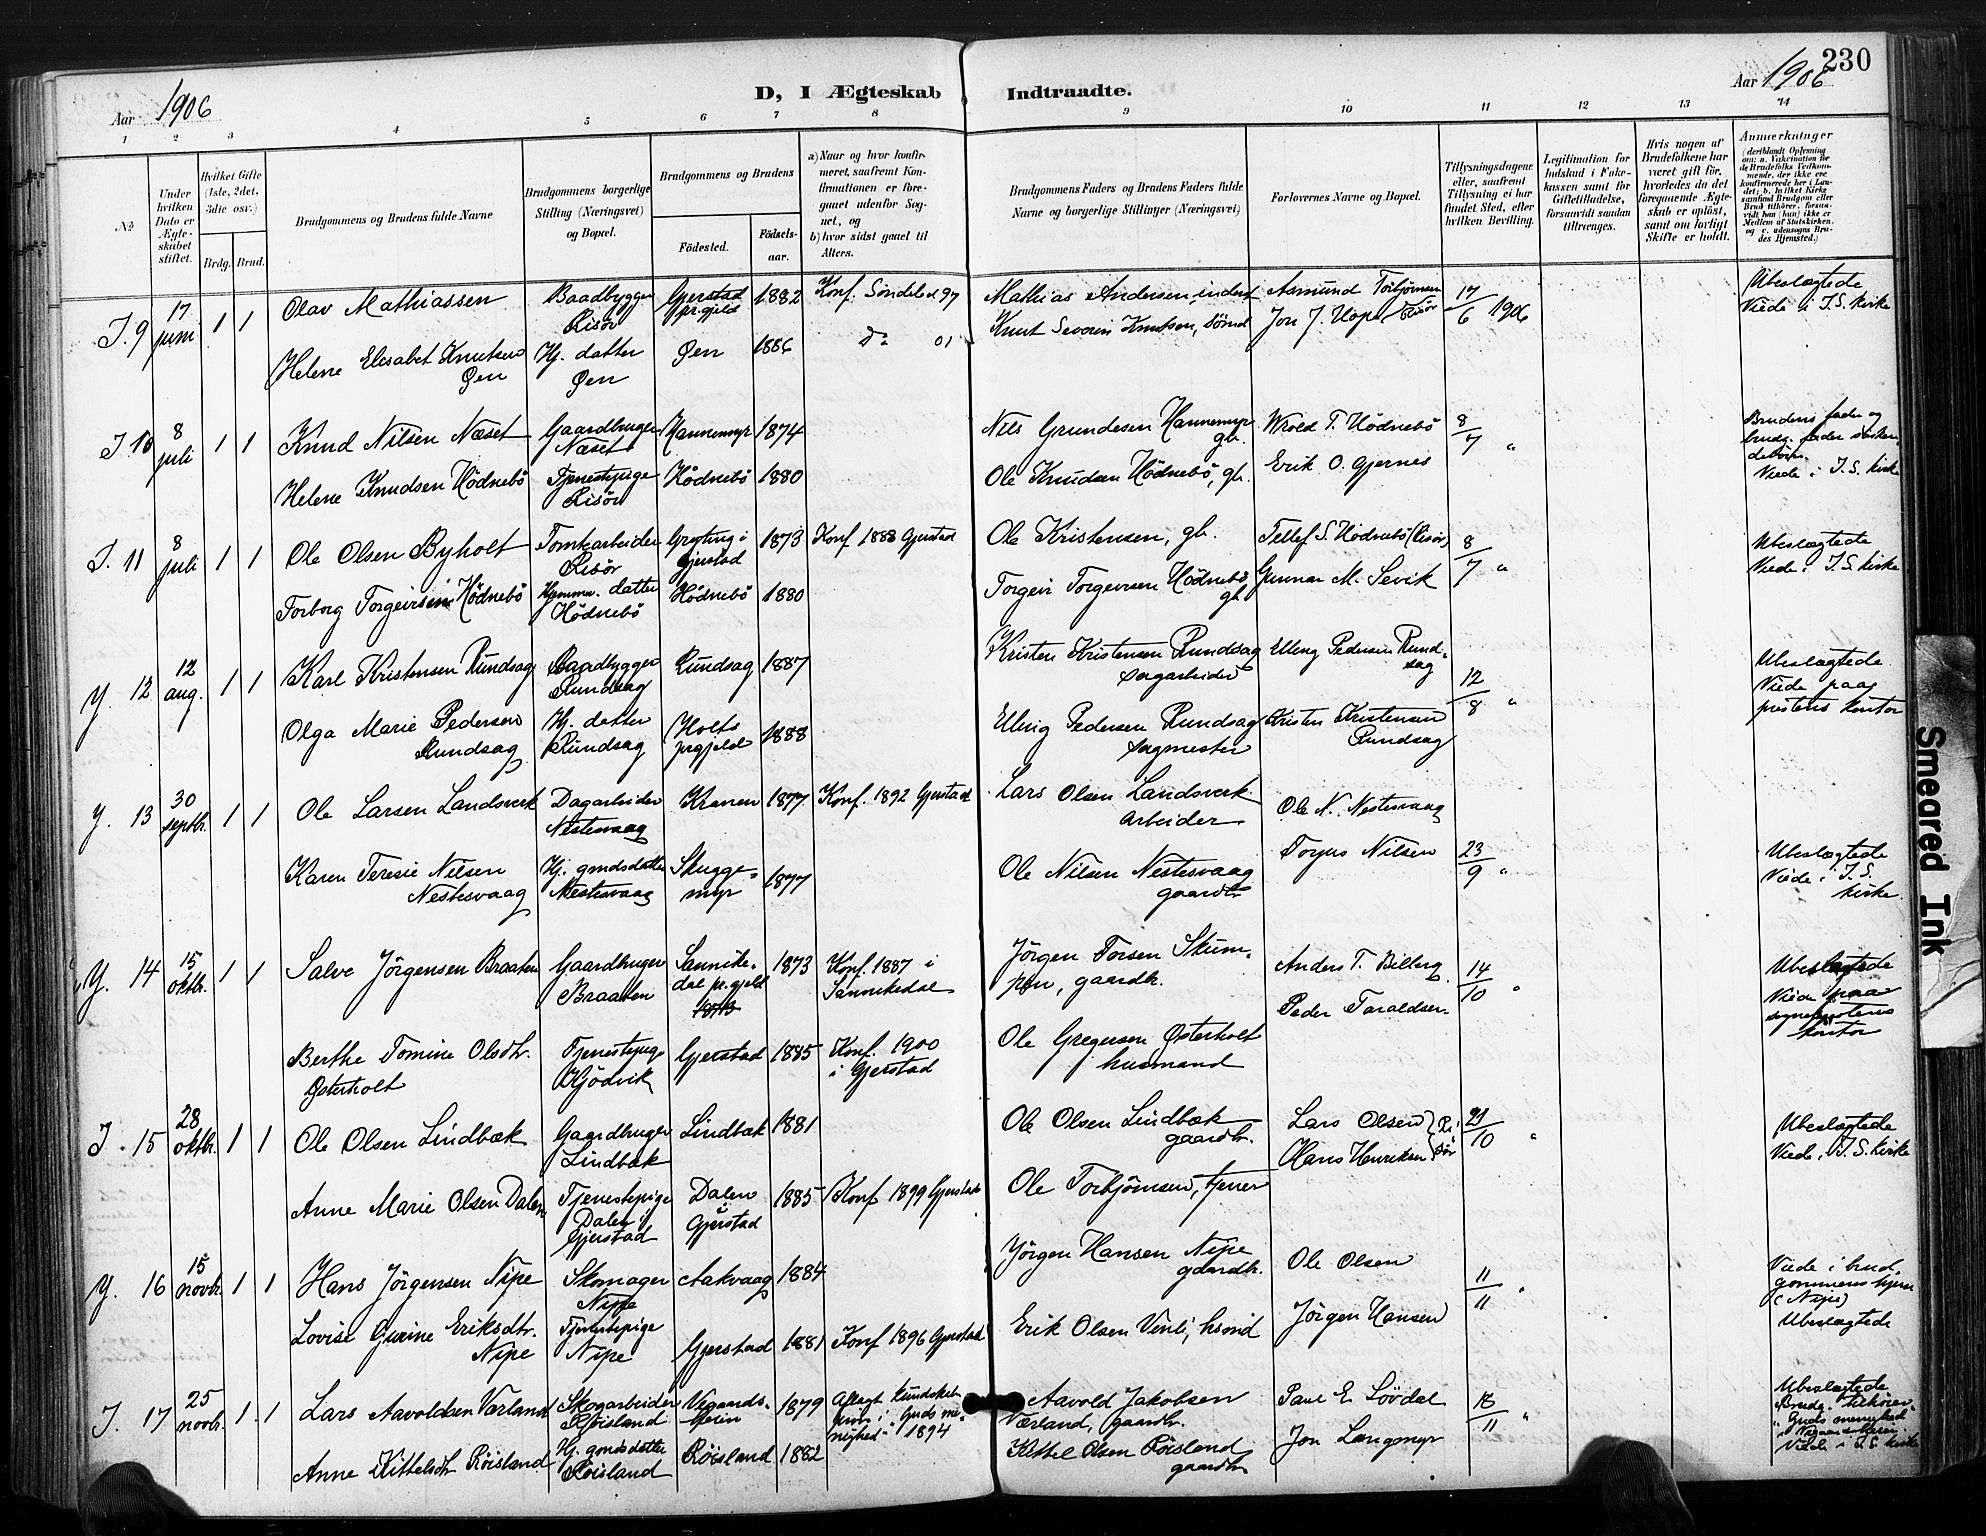 230
Aar 1906
D, I Ægteskab Indtraadte.
Aar 1906
1 2 3 4 5 6 7 8 9 10 11 12 13 14
№
Under hvilken Dato er Ægteskabet stiftet.
Hvilket Gifte (1ste, 2det, 3die osv.)
Brdg. Brud.
Brudgommens og Brudens fulde Navne
Brudgommens borgerlige Stilling (Næringsvei) og Bopæl.
Brudgommens og Brudens
Födested.
Födselsaar.
a) Naar og hvor konfirmeret, saafremt Konfirmationen er foregaaet udenfor Sognet, og
b) hvor sidst gaaet til Alters.
Brudgommens Faders og Brudens Faders fulde Navne og borgerlige Stillinger (Næringsvei)
Forlovernes Navne og Bopæl.
Tillysningsdagene eller, saafremt Tillysning ei har fundet Sted, efter hvilken Bevilling.
Legitimation for Indskud i Enkekassen samt for Giftetilladelse, forsaavidt saadan tiltrænges.
Hvis nogen af Brudefolkene har været gift för, hvorledes da det foregaaende Ægteskab er oplöst, samt om lovligt Skifte er holdt.
Anmerkninger
J. 9 17 juni 1 1 Olav Mathiassen Baadbygger Risör Gjerstad pr.gjeld 1882 Konf. Söndeled 97 Mathias Andersen, inderst Asmund Torbjörnsen 17/6 1906 Ubeslægtede Viede i J.S. kirke
Helene Elisabet Knutsen Øen Hj. datter Øen Øen 1886 Do 01 Knut Severin Knutsen, Jon J. Hope, Risör
J. 10 8 juli 1 1 Knud Nilsen Næset Gaardbruger Næset Hannemyr 1874 Nils Grundesen Hannemyr gb. Wrold T. Hödnebö 8/7 " Brudens fader og brudg. fader Viede i J.S. kirke
Helene Knudsen Hödnebö Tjenestepige Risör Hödnebö 1880 Ole Knudsen Hödnebö, gb. Erik O. Gjernes
J. 11 8 juli 1 1 Ole Olsen Byholt Tomtearbeider Risör Gryting i Gjerstad 1873 Konf. 1888 Gjerstad Ole Kristensen, gb. Tellef S. Hödnebö (Risör) 8/7 " Ubeslægtede Viede i J.S. kirke
Torborg Torgeirsen Hödnebö Hjemmev. datter Hödnebö Hödnebö 1880 Torgeir Torgeirsen Hödnebö gb. Gunnar M. Sevik
Y. 12 12 aug. 1 1 Karl Kristensen Rundsag Baadbygger Rundsag Rundsag 1887 Kristen Kristensen Rundsag sagarbeider Elling Pedersen Rundsag 12/8 " Ubeslægtede Viede paa prestens kontor
Olga Marie Pedersen Rundsag Hj. datter Rundsag Holts prgjeld 1888 Elling Pedersen Rundsag sagmester Kristen Kristensen Rundsag
Y. 13 30 septbr. 1 1 Ole Larsen Landsverk Dagarbeider Nestesvaag Kranen 1877 Konf. 1892 Gjerstad Lars Olsen Landsverk arbeider Ole N. Nestesvaag
Karen Teresie Nilsen Nestesvaag Hj. gmdsdatter Nestesvaag Skuggemyr 1877 Ole Nilsen Nestesvaag gaardbr. Torjus Nilsen 23/9 " Ubeslægtede Viede i J.S. kirke
Y. 14 15 oktbr. 1 1 Salve Jörgensen Braaten Gaardbruger Braaten Sannikedal pr.gjeld 1873 Konf. 1887 i Sannikedal Jörgen Torsen Skumpen, gaardbr. Anders T. Billerg 14/10 " Ubeslægtede Viede paa sogneprestens kontor
Berthe Tomine Olsdtr. Østerholt Tjenestepige Gjerstad 1885 Konf. 1900 i Gjerstad Ole Gregersen Østerholt husmand Peder Taraldsen
J. 15 28 oktbr. 1 1 Ole Olsen Lindbæk Gaardbruger Lindbæk Lindbæk 1881 Ole Olsen Lindbæk gaardbr. Lars Olsen Hans Henriksen Risör 21/10 " Ubeslægtede Viede i J.S. kirke
Anne Marie Olsen Dalen Tjenestepige Dalen i Gjerstad Dalen i Gjerstad 1885 Konf 1899 Gjerstad Ole Torbjörnsen, tjener
Y. 16 15 novbr. 1 1 Hans Jörgensen Nipe Skomager Nipe Aakvaag 1884 Jörgen Hansen Nipe gaardbr. Ole Olsen 11/11 " Viede i brudgommens hjem (Nipe) Ubeslægtede
Lovise Gurine Eriksdtr. Nipe Tjenestepige Nipe Gjerstad 1881 Konf 1896 Gjerstad Erik Olsen Venli, hsmd Jörgen Hansen
J. 17 25 novbr. 1 1 Lars Aavoldsen Værland Skogarbeider Röisland Vegaardsheien 1879 Aflagt kundskabspröve i "Guds menighed" 1894 Aavold Jakobsen Værland, gaardbr. Paul E. Lövdal 18/11 " Ubeslægtede Brudg. tilhörer "Guds menighed" Viede i J.S. kirke
Anne Kittelsdtr Röisland Hj. gmdsdatter Röisland Röisland 1882 Kittel Olsen Röisland gaardbr. Jon Langmyr
Smeared Ink